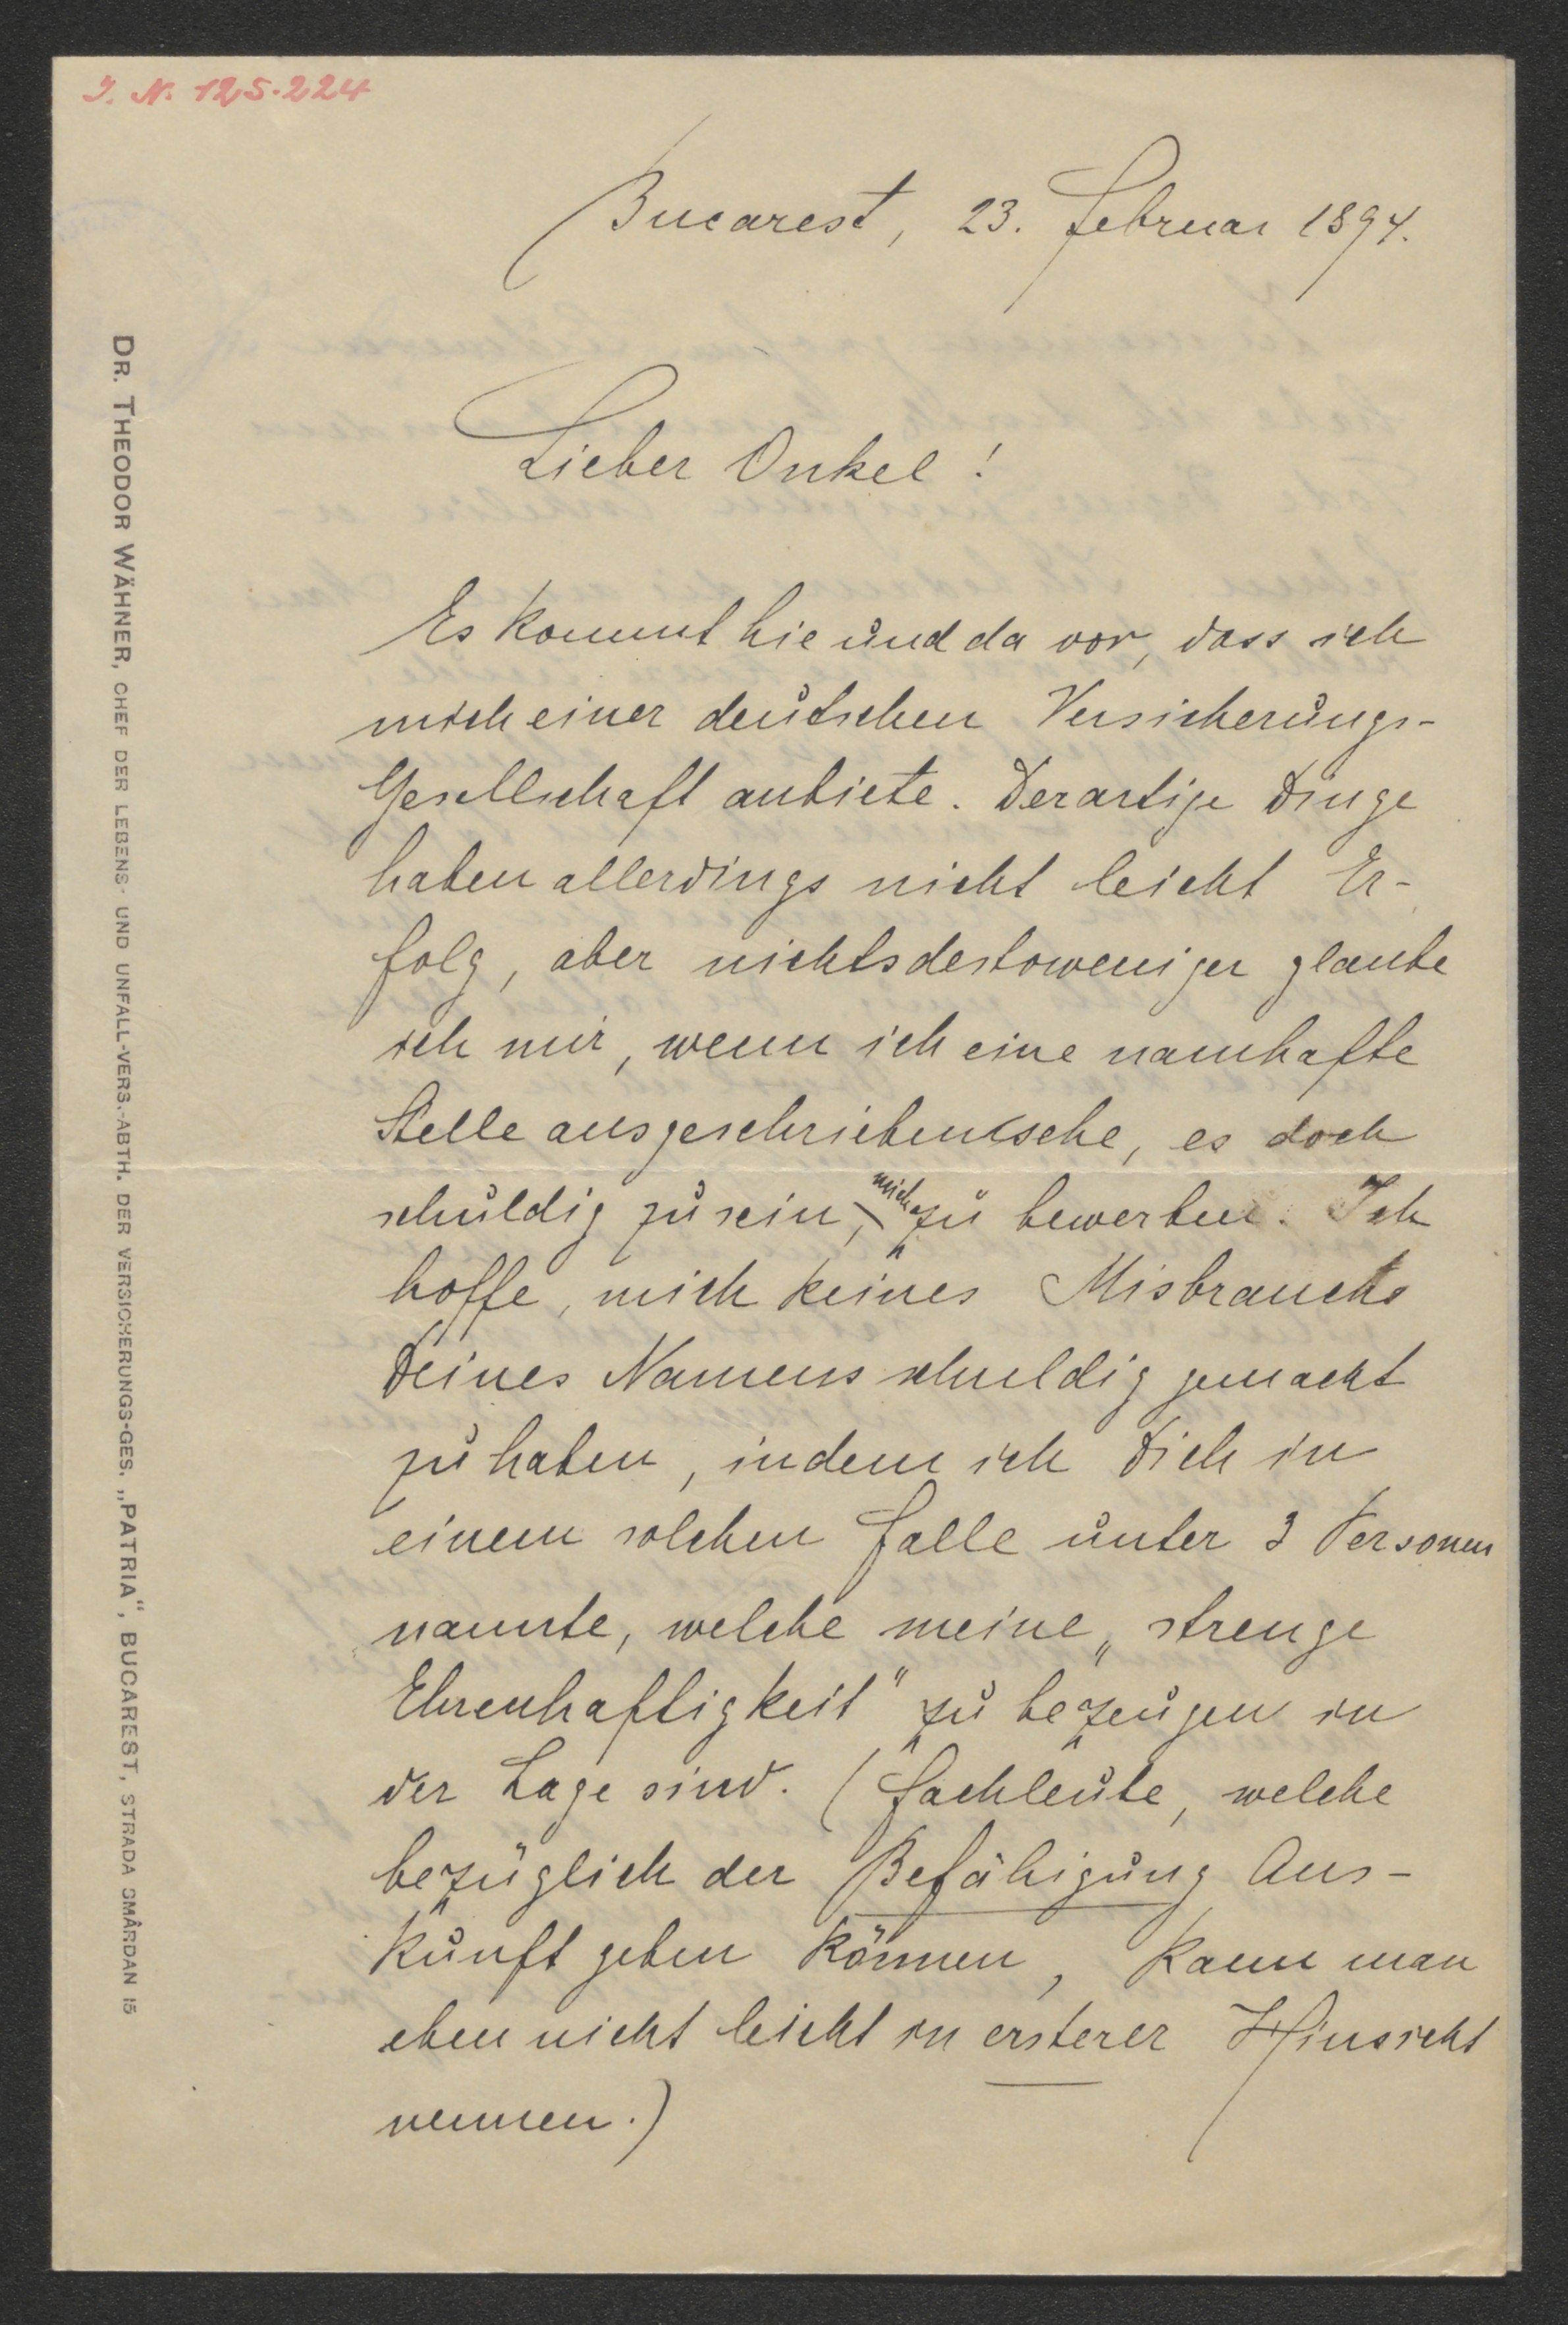 J. N. 125.224
Bucarest, 23. Februar 1894.
Lieber Onkel!
Es kommt hie und da vor, dass ich
mich einer deutschen Versicherungs-
Gesellschaft anbiete. Derartige Dinge
haben allerdings nicht leicht Er-
folg, aber nichtsdestoweniger glaube
ich mir, wenn ich eine namhafte
Stelle ausgeschrieben sehe, es doch
schuldig zu sein, mich zu bewerben. Ich
hoffe, mich keines Misbrauchs
Deines Namens schuldig gemacht
zu haben, indem ich Dich in
einem solchen Falle unter 3 Personen
nannte, welche meine „strenge
Ehrenhaftigkeit" zu bezeugen in
der Lage sind. (Fachleute, welche
bezüglich der Befähigung Aus-
kunft geben können, kann man
eben nicht leicht in ersterer Hinsicht
nennen.)
DR. THEODOR WÄHNER, CHEF DER LEBENS- UND UNFALL-VERS.-ABTH. DER VERSICHERUNGS-GES. „PATRIA“, BUCAREST, STRADA SMÂRDAN 15